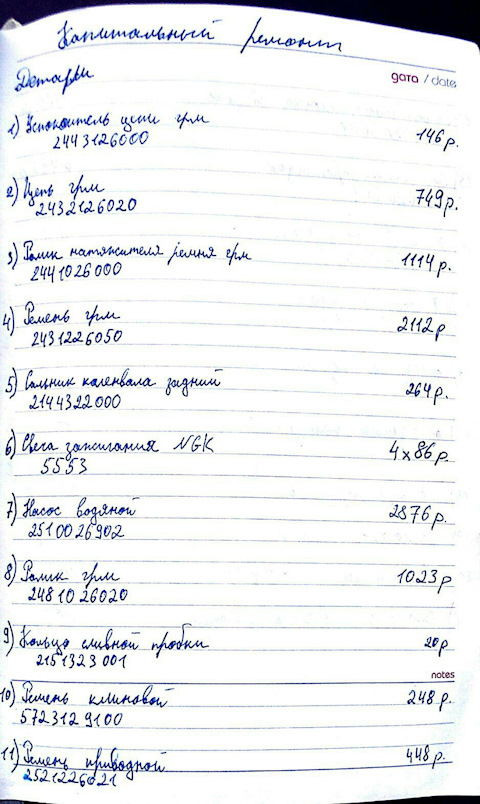 Капитальный ремонт
Детали
дата / date
1) Успокоитель цепи грм 146 р.
2443126000
2) Цепь грм 749 р.
2432126020
3) Ролик натяжителя ремня грм 1114 р.
2441026000
4) Ремень грм 2112 р
2431226050
5) Сальник коленвала задний 264 р.
2144322000
6) Свеча зажигания NGK 4x86 р.
5553
7) Насос водяной 2876 р.
2510026902
8) Ролик грм 1023 р
2481026020
9) Кольцо сливной пробки 20 р
2151323001
notes
10) Ремень клиновой 248 р.
5723129100
11) Ремень приводной 448 р.
2521226021